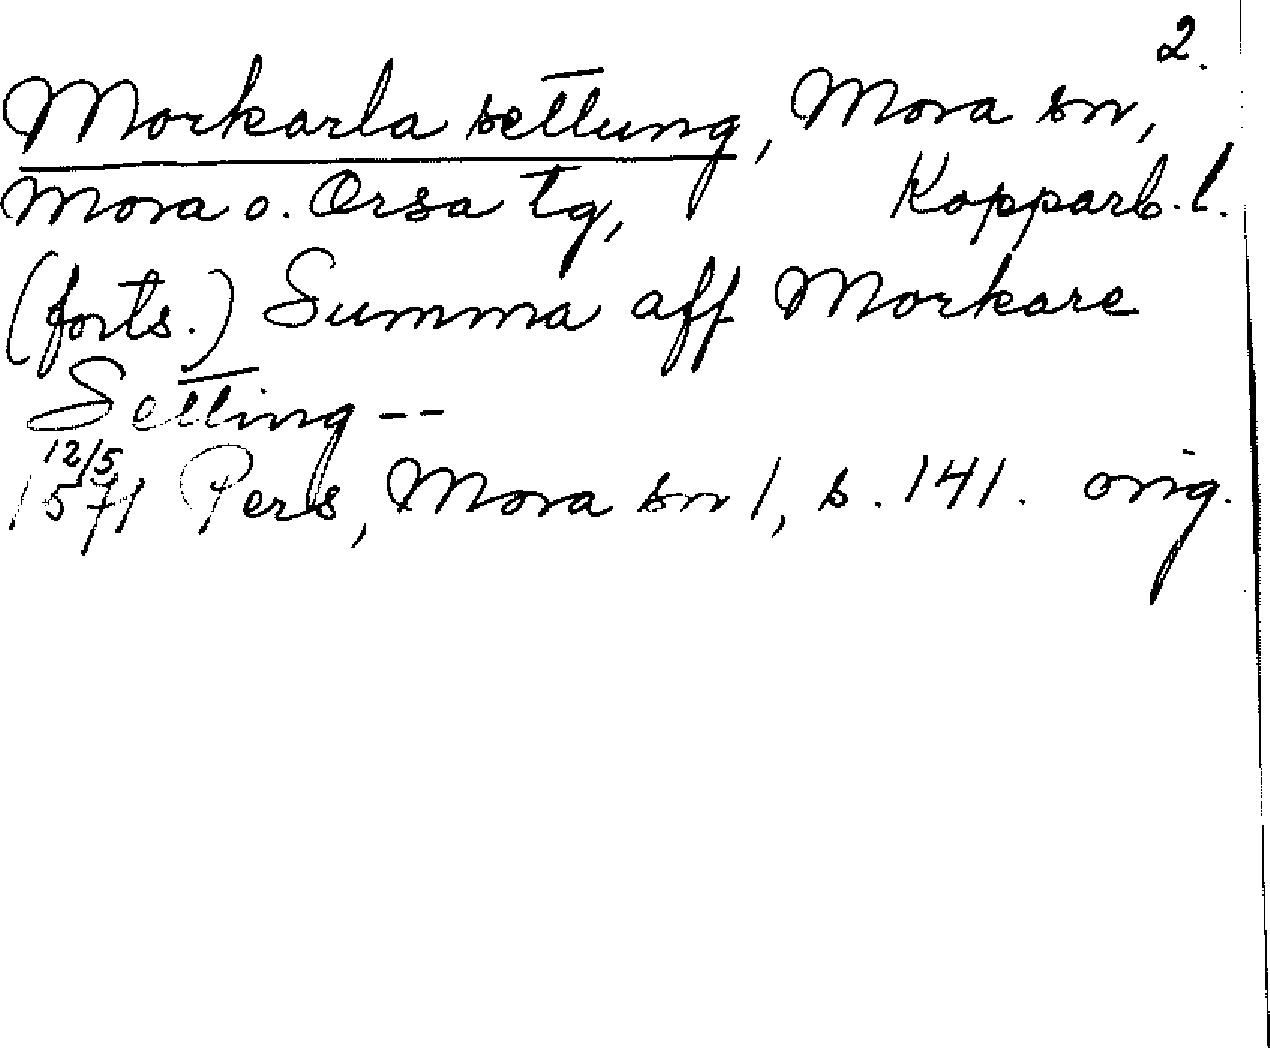 2.
Morkarla settung, Mora sn,
Mora o. Orsa tg, Kopparb. l.
(forts.) Summa aff Morkare
Setting --
12/5
1571 Pers, Mora sn 1, s. 141. orig.